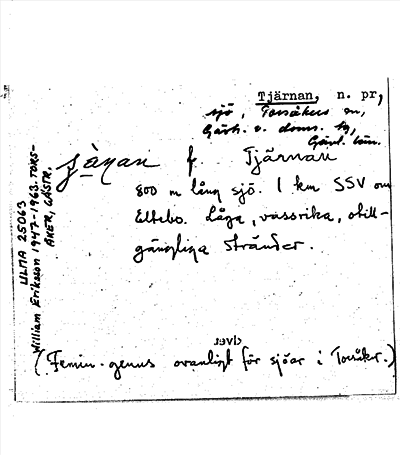 Tjärnan, n. pr,
sjö, Torsåkers sn,
Gästr. v. doms. hg,
Gävl. län.
jänan f. Tjärnan
800 m lång sjö. 1 km SSV om
Eltebo. Låga, vassrika, otill-
gängliga stränder.
(Femin. genus ovanligt för sjöar i Torsåker.)
ULMA 25063
William Eriksson 1947-1963. TORS-
ÅKER, GÄSTR.